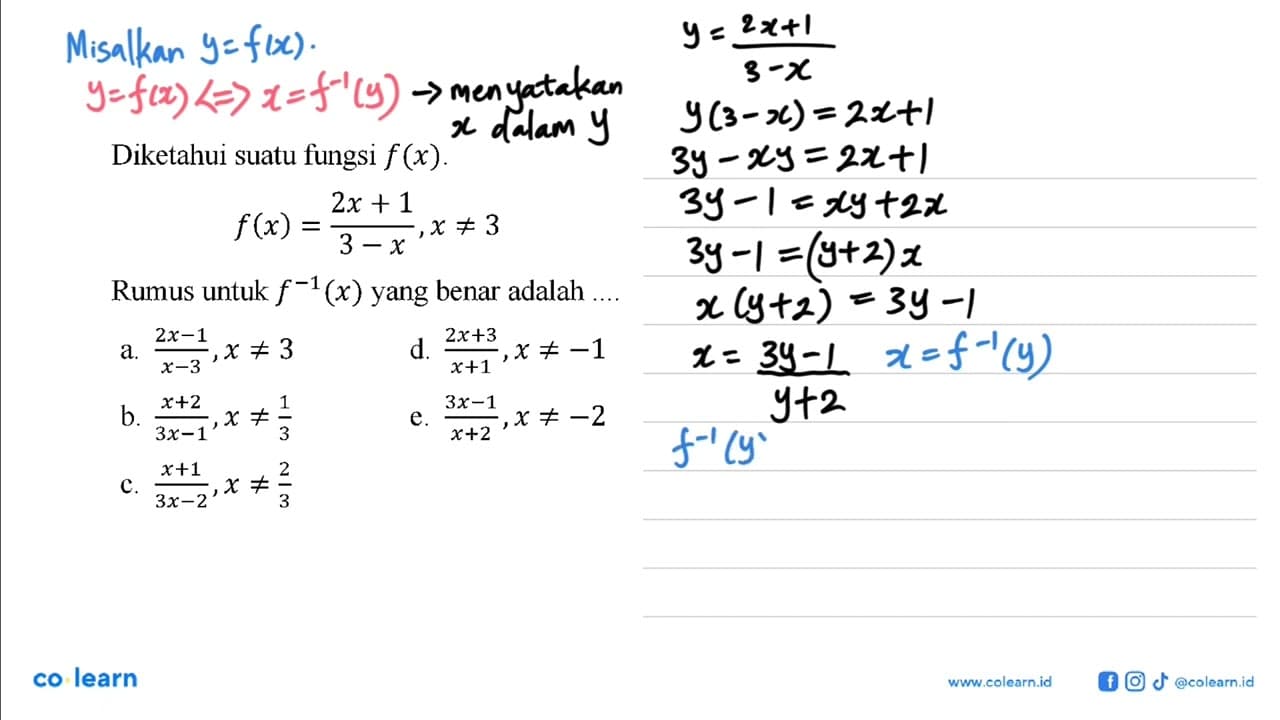 Misalkan y=f(x).
y=f(x) <=> x=f⁻¹(y) → menyatakan
x dalam y
Diketahui suatu fungsi f(x).
f(x) = (2x + 1)/(3 − x), x ≠ 3
Rumus untuk f⁻¹(x) yang benar adalah ....
a. (2x−1)/(x−3), x ≠ 3
d. (2x+3)/(x+1), x ≠ −1
b. (x+2)/(3x−1), x ≠ 1/3
e. (3x−1)/(x+2), x ≠ −2
c. (x+1)/(3x−2), x ≠ 2/3
y = (2x+1)/(3-x)
y(3-x) = 2x+1
3y-xy = 2x+1
3y-1 = xy+2x
3y-1 = (y+2)x
x(y+2) = 3y-1
x = (3y-1)/(y+2) x = f⁻¹(y)
f⁻¹(y)
co learn
www.colearn.id @colearn.id